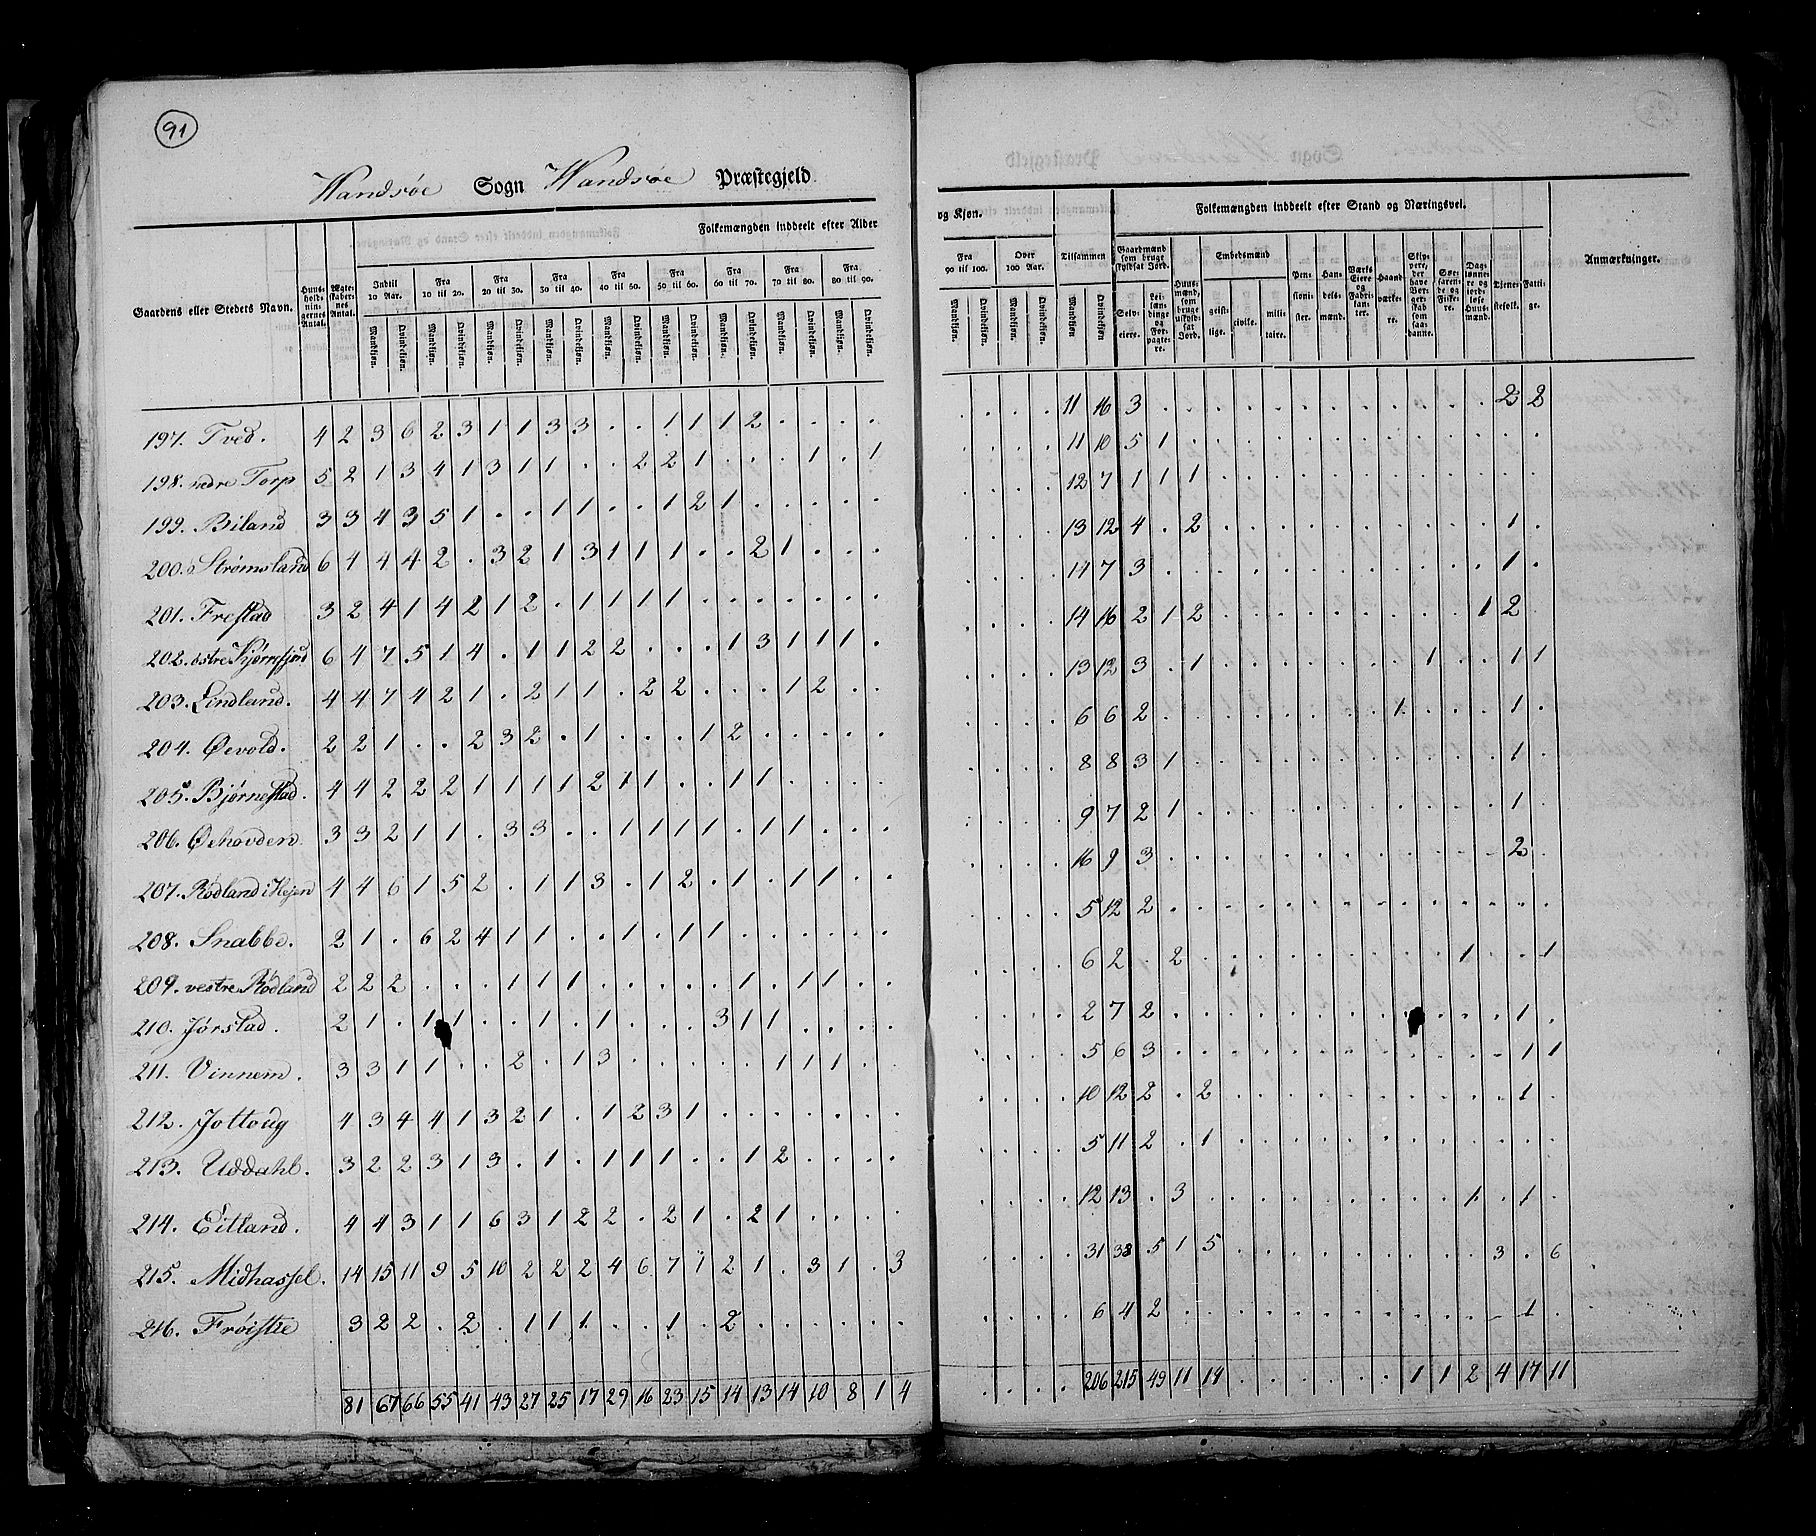 91
Wandsøe Sogn Wandsøe Præstegjeld
Gaardens eller Steders Navn. Huus-holdningernes Antal. Ægteskabernes Antal. Folkemængden inddeelt efter Alder
Indtil 10 Aar. Fra 10 til 20. Fra 20 til 30. Fra 30 til 40. Fra 40 til 50. Fra 50 til 60. Fra 60 til 70. Fra 70 til 80. Fra 80 til 90.
Mandkjøn. Qvindekjøn. Mandkjøn. Qvindekjøn. Mandkjøn. Qvindekjøn. Mandkjøn. Qvindekjøn. Mandkjøn. Qvindekjøn. Mandkjøn. Qvindekjøn. Mandkjøn. Qvindekjøn. Mandkjøn. Qvindekjøn. Mandkjøn. Qvindekjøn.
197. Tved. 4 2 3 6 2 3 1 1 3 3 . . 1 1 1 2 . . . .
198. nedre Torp 5 2 1 3 4 1 3 1 1 . . 2 2 1 . . . 1 . 1
199. Biland 3 3 4 3 5 1 . . 1 1 . . 1 2 1 . . . . .
200. ø Strømsland 6 4 4 4 2 . 3 2 1 3 1 1 1 . . 2 1 . . .
201. Frestad 3 2 4 1 4 2 1 2 . 1 1 1 1 . . . . . . .
202. østre Kjørrefjord 6 4 7 5 1 4 . 1 1 2 2 . . . 1 3 1 1 1 .
203. Lindland. 4 4 7 4 2 1 . 2 1 1 . 2 2 . . . 1 2 . .
204. Øevold. 2 2 1 . . 2 3 2 . 1 . . . 1 2 . . . . .
205. Bjørnestad. 4 4 2 2 2 1 1 1 1 2 1 1 . . 1 1 . . . .
206. Øehovden 3 3 2 1 1 . 3 3 . . 1 1 1 1 . 1 1 . . .
207. Rødland i Hejen 4 4 6 1 5 2 . 1 1 3 . 1 2 . 1 . 1 1 . .
208. Snabbe. 2 1 . 6 2 4 1 1 . . 1 . 1 1 . . . . . .
209. vestre Rødland 2 2 2 . . . 1 1 1 . . . . . 1 . 1 1 . .
210. Jørstad. 2 1 . 1 1 . . 1 . 1 . . . 3 1 1 . . . .
211. Vinnem. 3 3 1 1 . . 2 . 1 3 . . . . . 1 1 1 . .
212. Jottoug 4 3 4 4 1 3 2 1 . 1 2 3 1 . . . . . . .
213. Uddahl. 3 2 2 3 1 3 . 1 . 1 1 1 . . 1 2 . . . .
214. Eitland. 4 4 3 1 1 6 3 1 2 2 . 2 1 . 2 1 . . . .
215. Midhassel. 14 15 11 9 5 10 2 2 2 4 6 7 1 2 1 . 3 1 . 3
216. Frøistie 3 2 2 . 2 . 1 1 1 . . 1 . 2 . . . . . .
81 67 66 55 41 43 27 25 17 29 16 23 15 14 13 14 10 8 1 4
og Kjøn. Folkemængden inddeelt efter Stand og Næringsvei. Anmærkninger.
Fra 90 til 100. Over 100 Aar. Tilsammen Gaardmænd som bruge skyldsat Jord. Huusmænd, som bruge uskyldsat Jord. Embedsmænd Pensionister. Handelsmænd. Værks Eiere og Fabrikanter. Haandværkere. Skippere, der have Borgerskab som saadanne. Søefarende og Fiskere. Daglønnere og jordløse Huusmænd. Tjenestefolk. Fattige.
Mandkjøn. Qvindekjøn. Mandkjøn. Qvindekjøn. Mandkjøn Qvindekjøn. Selveiere. Leilændinge og Forpagtere. geistlige. civile. militaire.
. . . . 11 16 3 . . . . . . . . . . . . 2 2
. . . . 11 10 5 1 . . . . . . . . . . . . .
. . . . 12 7 1 1 1 . . . . . . . . . . . .
. . . . 13 12 4 . 2 . . . . . . . . . . 1 .
. . . . 14 7 3 . . . . . . . . . . . . 1 .
. . . . 14 16 2 1 2 . . . . . . . . . 1 2
. . . . 13 12 3 . 1 . . . . . . . 1 . . 1 1
. . . . 6 6 2 . . . . . . . . 1 . . . 1 .
. . . . 8 8 3 1 . . . . . . . . . . . 1 .
. . . . 9 7 2 1 . . . . . . . . . . . 1 .
. . . . 16 9 3 . . . . . . . . . . . . 2 .
. . . . 5 12 2 . . . . . . . . . . . . . .
. . . . 6 2 . 2 . . . . . . . . . 1 . . 1
. . . . 2 7 2 . . . . . . . . . . . . 1 .
. . . . 5 6 3 . . . . . . . . . . . . 1 1
. . . . 10 12 2 . 2 . . . . . . . . . . 1 .
. . . . 5 11 2 . 1 . . . . . . . . . . . .
. . . . 12 13 . 3 . . . . . . . . . 1 . 1 .
. . . . 31 38 5 1 5 . . . . . . . . . 3 . 6
. . . . 6 4 2 . . . . . . . . . . . . 1 .
. . . . 206 215 49 11 14 . . . . . . 1 1 2 4 17 11